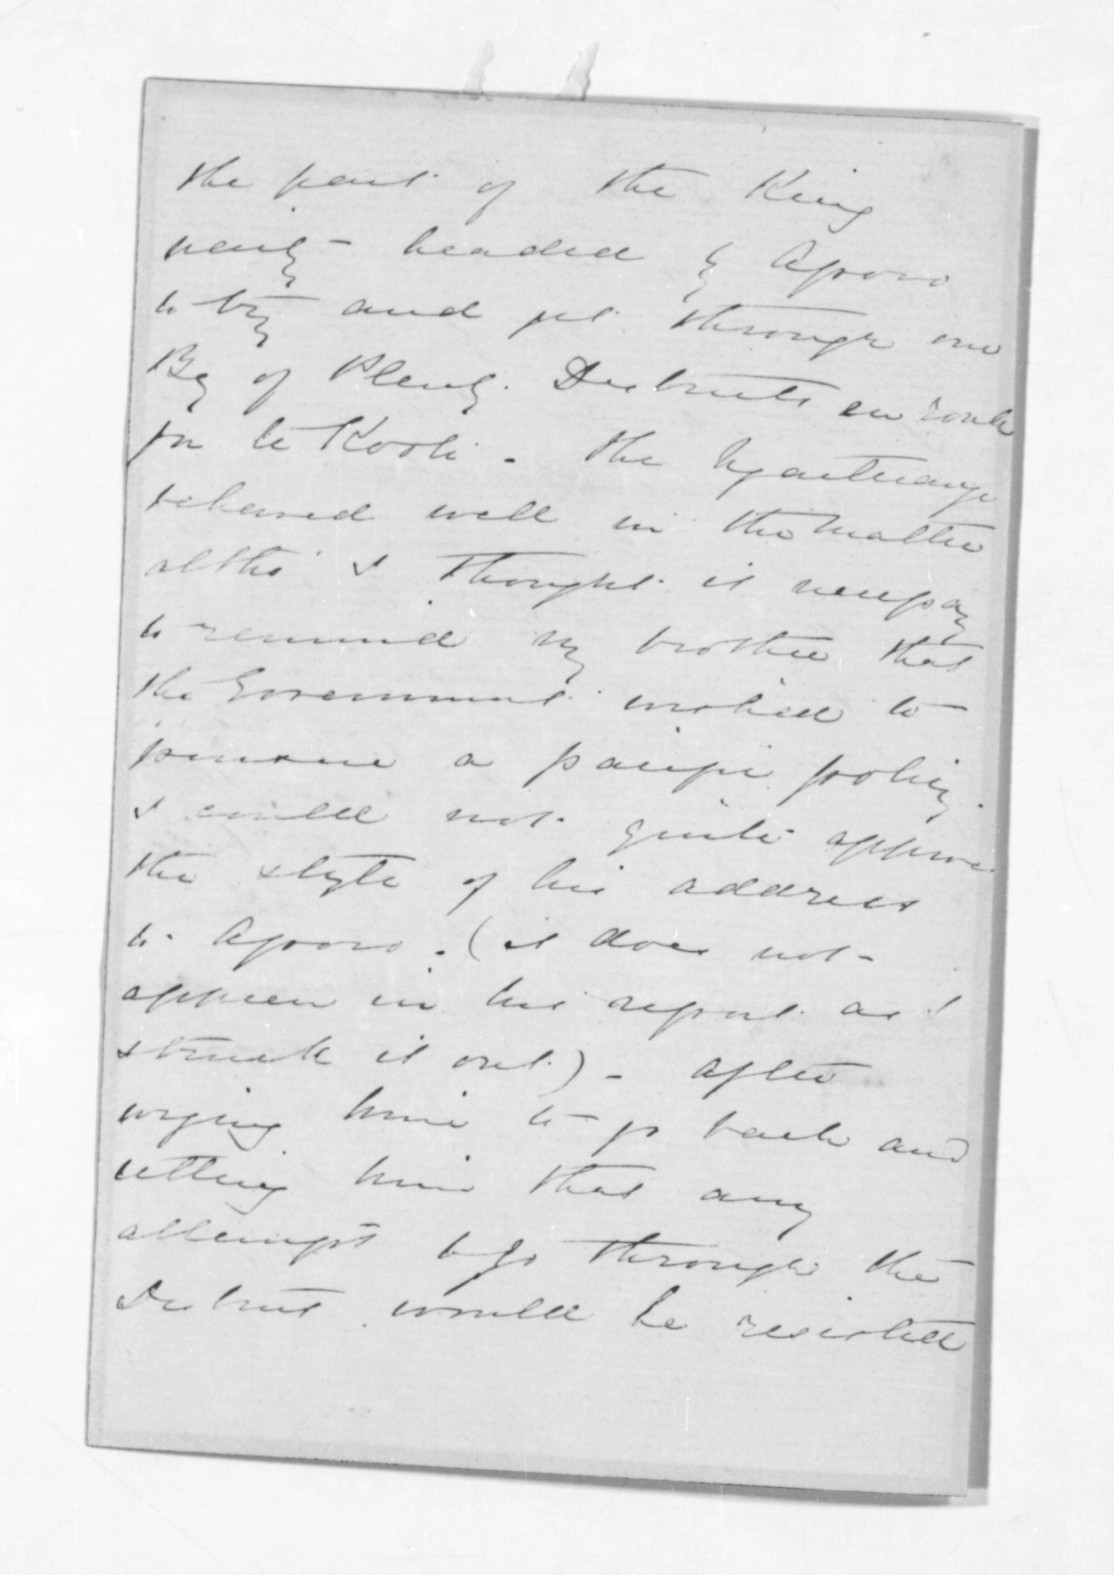 the part of the King
party - headed by Aporo
to try and get through our
Bay of Plenty. Districts en route
for te Kooti - The Ngaiterangi
behaved well in the matter
altho' I thought it necessary
to remind my brother that
the Government wished to
pursue a pacific policy.
I could not quite approve
the style of his address
to Aporo. (it does not -
appear in his report as I
struck it out) - After
urging him to go back and
telling him that any
attempt to go through the
District would be resisted